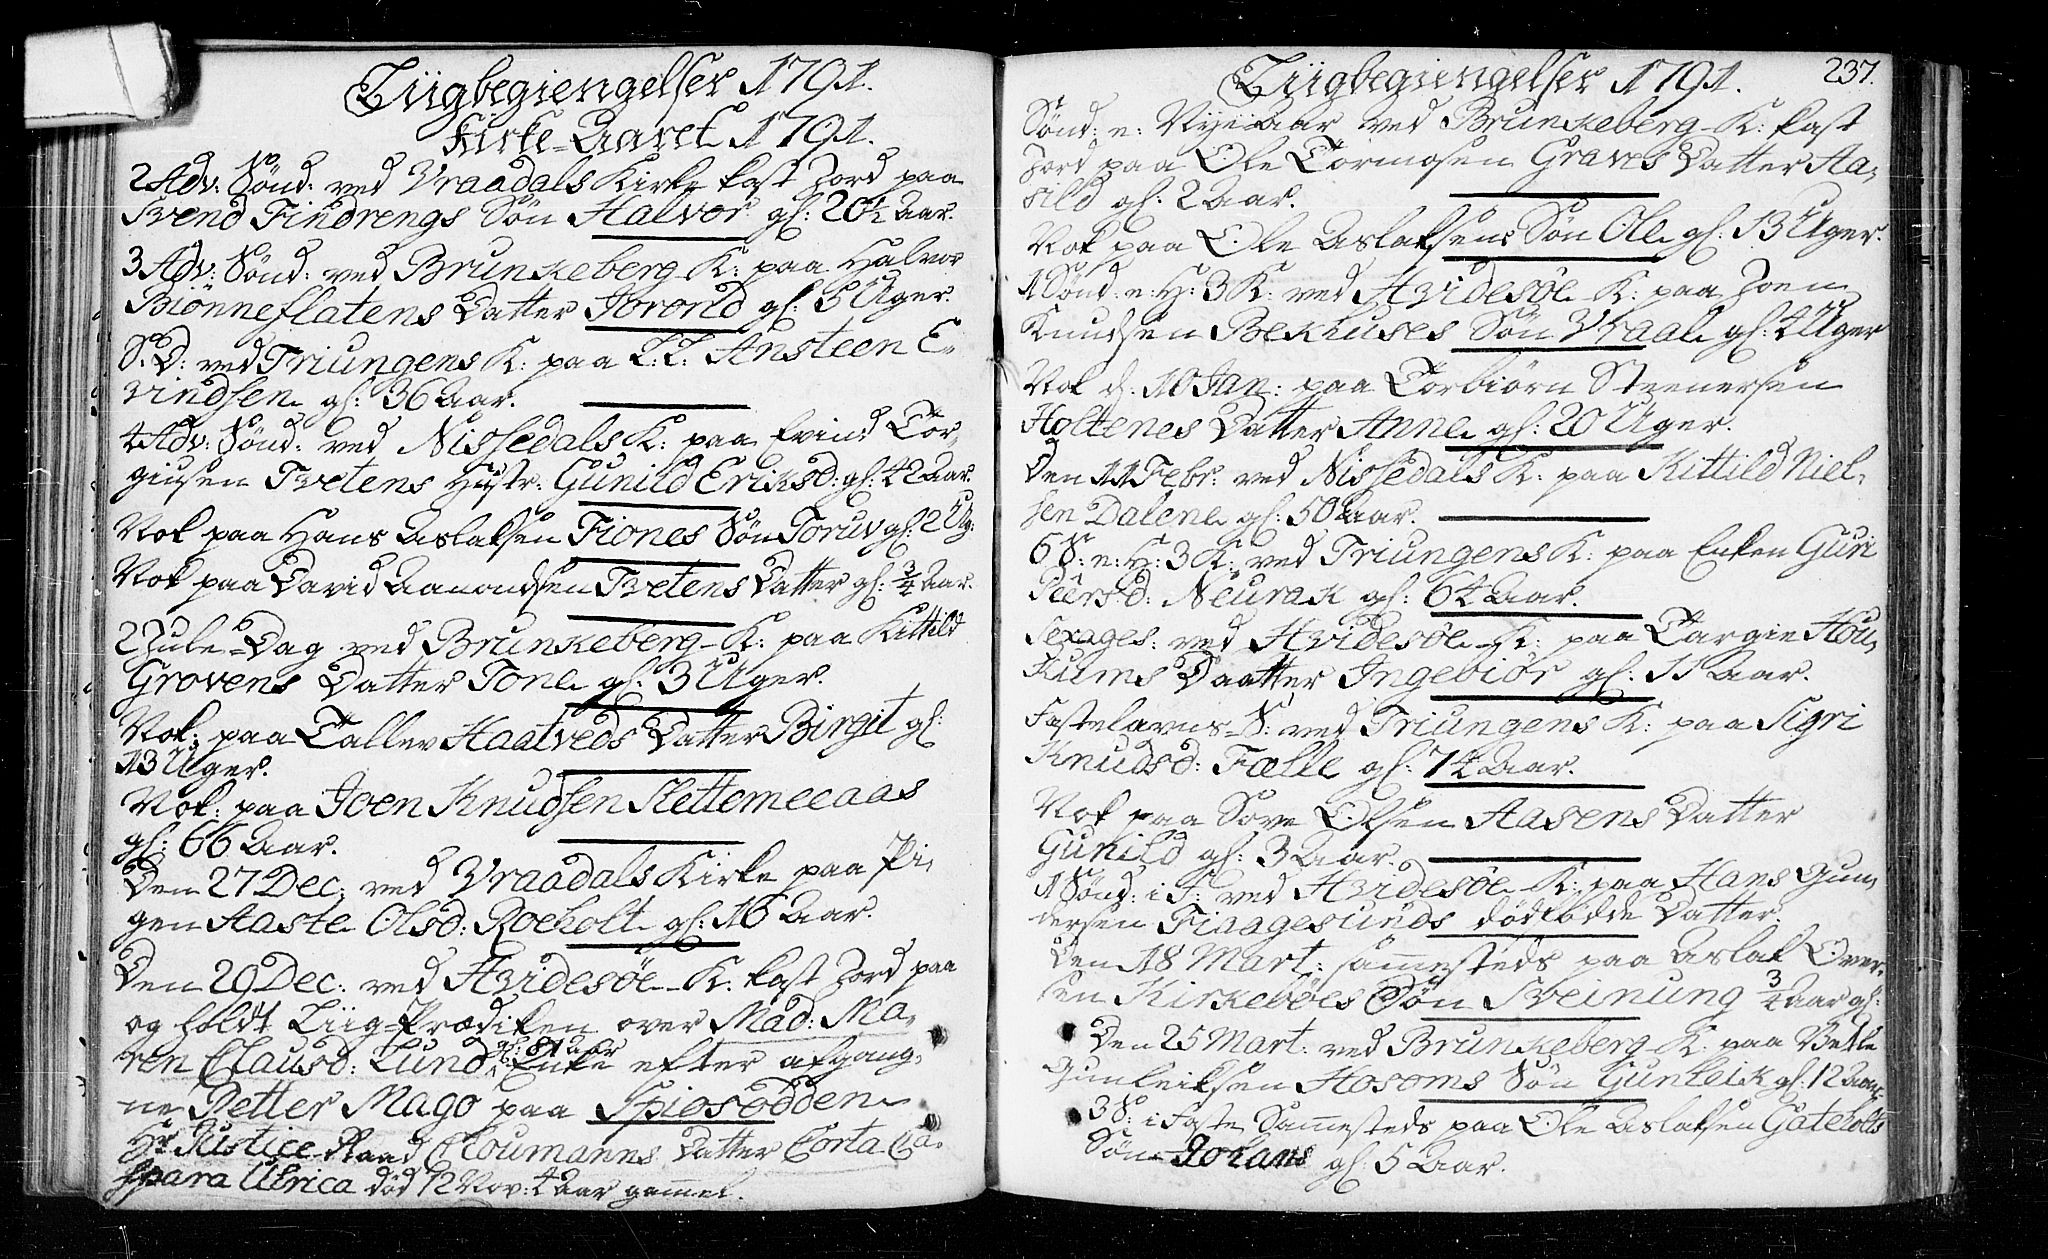 Liigbegiengelser 1791.
Kirke-Aaret 1791.
2 Adv: Sønd: ved Vraadals Kirke kast Jord paa
Svend Findrengs Søn Halvor gl: 20½ Aar.
3 Adv: Sønd: ved Brunkeberg K: paa Halvor
Biönneflatens Datter Jorond gl: 5 Uger.
S. D: ved Triungens K: paa L: L: Ansteen E-
vindsen gl: 36 Aar.
4 Adv: Sønd: ved Nissedals K: paa Evind Tor-
giusen Tvetens Hustr: Gunild Eriksd: gl: 42 Aar.
Nok paa Hans Aslaksen Fiones Søn Toruv gl: 2 Ug:
Nok paa David Aamondsen Tvetens Datter gl: ¾ Aar.
2 Jule-Dag ved Brunkeberg K: paa Kittild
Grovens Datter Tone gl: 3 Uger.
Nok: paa Tallev Haatveds Datter Birgit gl:
13 Uger.
Nok: paa Joen Knudsen Slettemeeaas
gl: 66 Aar.
Den 27 Dec: ved Vraadals Kirke paa Pi-
gen Aaste Olsd: Roeholt gl: 16 Aar.
Den 29 Dec: ved Hvidesöe K. kast Jord paa
og holdt Liig-Prædiken over Mad: Ma-
ren Clausd: Lund gl: 81 Aar Enke efter afgang-
ne Petter Mago paa Spiosodden
Hr Justice-Raad Cloumanns Datter Dorta Ca-
spara Ulrica död 12 Nov: 4 Aar gammel.
Liigbegiengelser 1791.
237.
Sønd: e: Nye-aar ved Brunkeberg K: kast
Jord paa Ole Tormosen Graves Datter Aa-
sild gl: 2 Aar.
Nok paa Ole Aslaksens Søn Ole gl: 13 Uger.
1 Sønd: e: H: 3 K: ved Hvidesöe K: paa Joen
Knudsen Bekhuses Søn Vraal gl: 4 Uger
Nok d. 10 Jan: paa Torbiörn Steenersen
Holtenes Datter Anne gl: 20 Uger.
Den 11 Febr: ved Nissedals K: paa Kittild Niel-
sen Dalene gl: 50 Aar.
6 S: e: H: 3 K: ved Triungens K: paa Enken Guri
Peersd: Neurak gl: 64 Aar.
Sexages: ved Hvidesöe K: paa Targie Hou-
kums Daatter Ingebiör gl: 11 Aar.
Fastelavns-S: ved Triungens K: paa Sigri
Knudsd: Fælle gl: 74 Aar.
Nok paa Sove Olsen Aasens Datter
Gunild gl: 3 Aar.
1 Sønd: i F: ved Hvidesöe K: paa Hans Gun-
dersen Fiaagesunds dödfödde Datter.
Den 18 Mart: sammesteds paa Aslak Over-
sen Kirkeböes Søn Sveinung ¾ Aar gl:
Den 25 Mart: ved Brunkeberg K: paa Vetle
Gunleiksen Hosoms Søn Gunleik gl: 12 Aar.
3 S: i Faste Sammesteds paa Ole Aslaksen Gateholts
Søn Johans gl: 5 Aar.